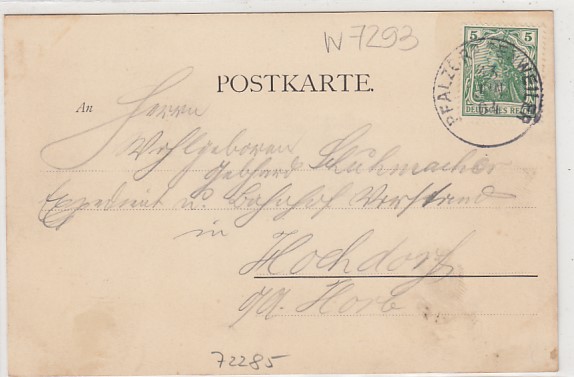 W 7293
POSTKARTE.
5 5
DEUTSCHES REICH
PFALZGRAFENWEILER
An Herrn
Wohlgeboren
Gebhard Schuhmacher
Expedient u. Bahnhof Vorstand
in
Hochdorf
O/A. Horb
72285